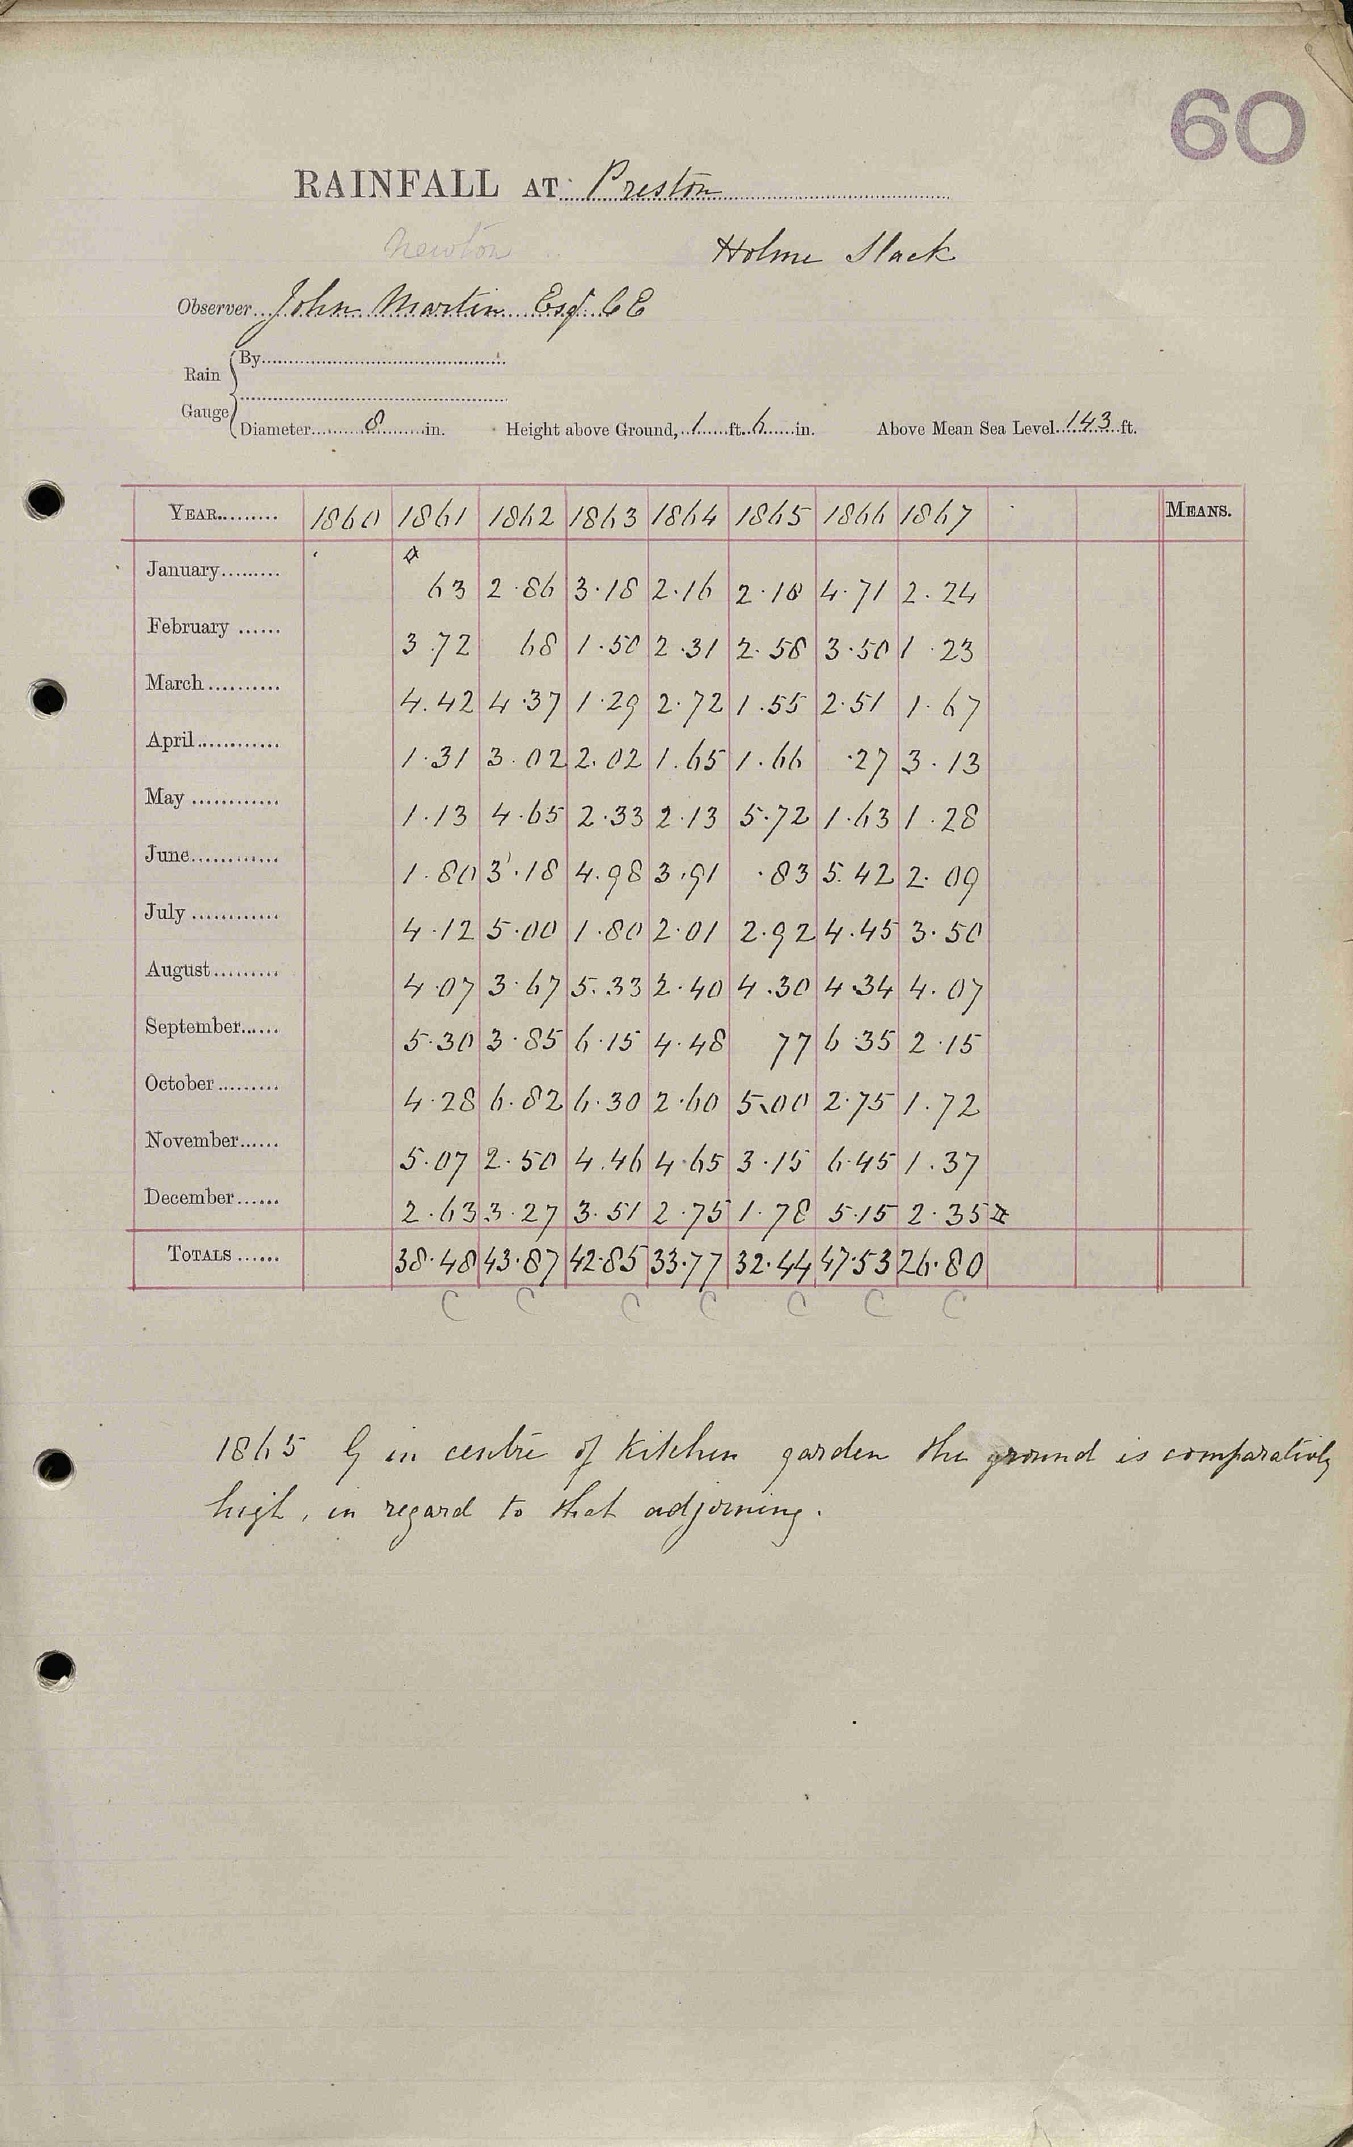 60
RAINFALL AT Preston
Newton Holme Slack
Observer John Martin Esqr CE
Rain Gauge
By
Diameter 8 in. Height above Ground, 1 ft. 6 in. Above Mean Sea Level 143 ft.
YEAR 1860 1861 1862 1863 1864 1865 1866 1867 MEANS.
January 63 2.86 3.18 2.16 2.18 4.71 2.24
February 3.72 68 1.50 2.31 2.58 3.50 1.23
March 4.42 4.37 1.29 2.72 1.55 2.51 1.67
April 1.31 3.02 2.02 1.65 1.66 .27 3.13
May 1.13 4.65 2.33 2.13 5.72 1.63 1.28
June 1.80 3.18 4.98 3.91 .83 5.42 2.09
July 4.12 5.00 1.80 2.01 2.92 4.45 3.50
August 4.07 3.67 5.33 2.40 4.30 4.34 4.07
September 5.30 3.85 6.15 4.48 77 6.35 2.15
October 4.28 6.82 6.30 2.60 5.00 2.75 1.72
November 5.07 2.50 4.46 4.65 3.15 6.45 1.37
December 2.63 3.27 3.51 2.75 1.78 5.15 2.35
TOTALS 38.48 43.87 42.85 33.77 32.44 47.53 26.80
C C C C C C C
1865 G in centre of kitchen garden the ground is comparatively
high, in regard to that adjoining.